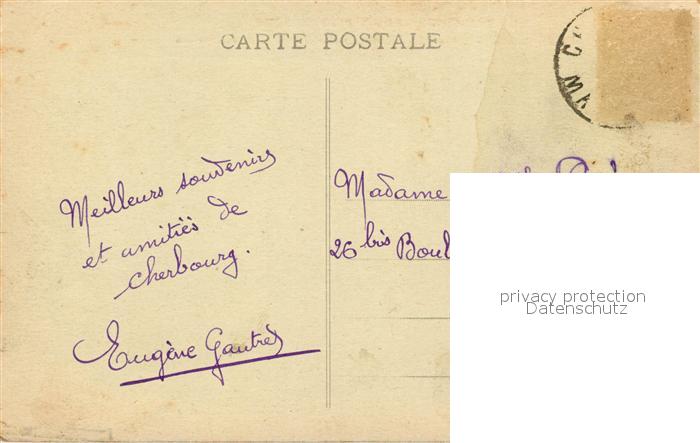 CARTE POSTALE
Meilleurs souvenirs
et amitiés de
Cherbourg.
Eugène
Madame
26 bis Boul
privacy protection
Datenschutz